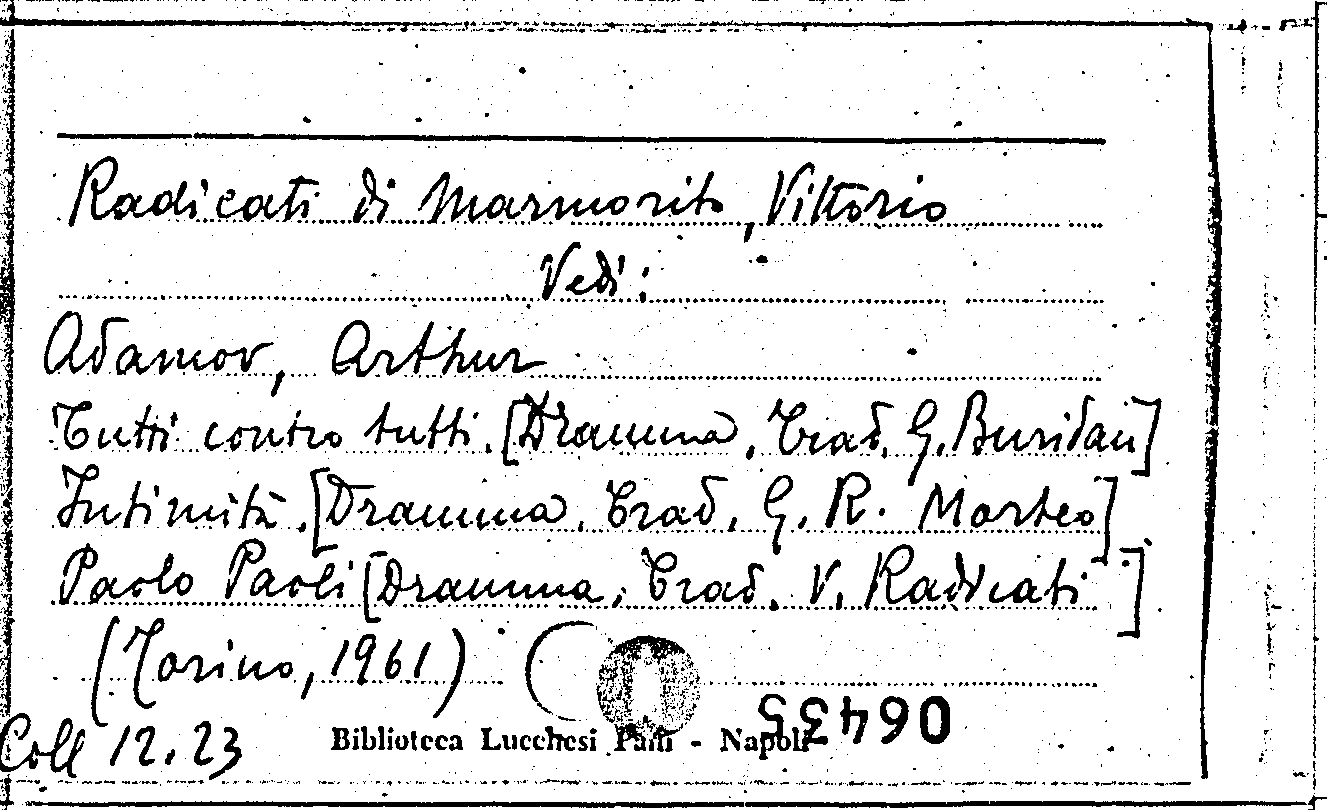 Radicati di Marmorito, Vittorio
Vedi:
Adamov, Arthur
Tutti contro tutti. [Dramma. Trad. G. Buridan]
Intimità. [Dramma. Trad. G. R. Morteo]
Paolo Paoli [Dramma. Trad. V. Radicati]
(Torino, 1961)
Coll 12.23
Biblioteca Lucchesi Palli - Napoli
06435